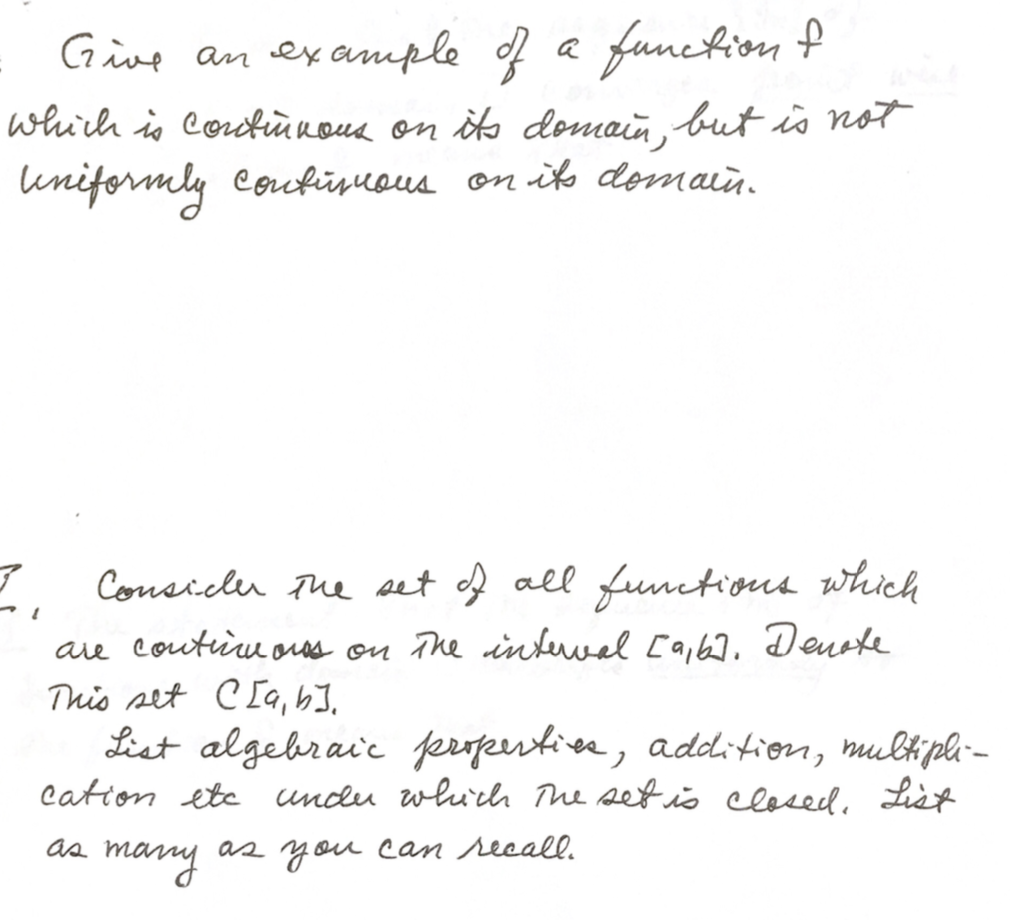 Give an example of a function f
which is continuous on its domain, but is not
uniformly continuous on its domain.
Consider the set of all functions which
are continuous on the interval [a,b]. Denote
This set C[a,b].
List algebraic properties, addition, multipli-
cation etc under which the set is closed. List
as many as you can recall.